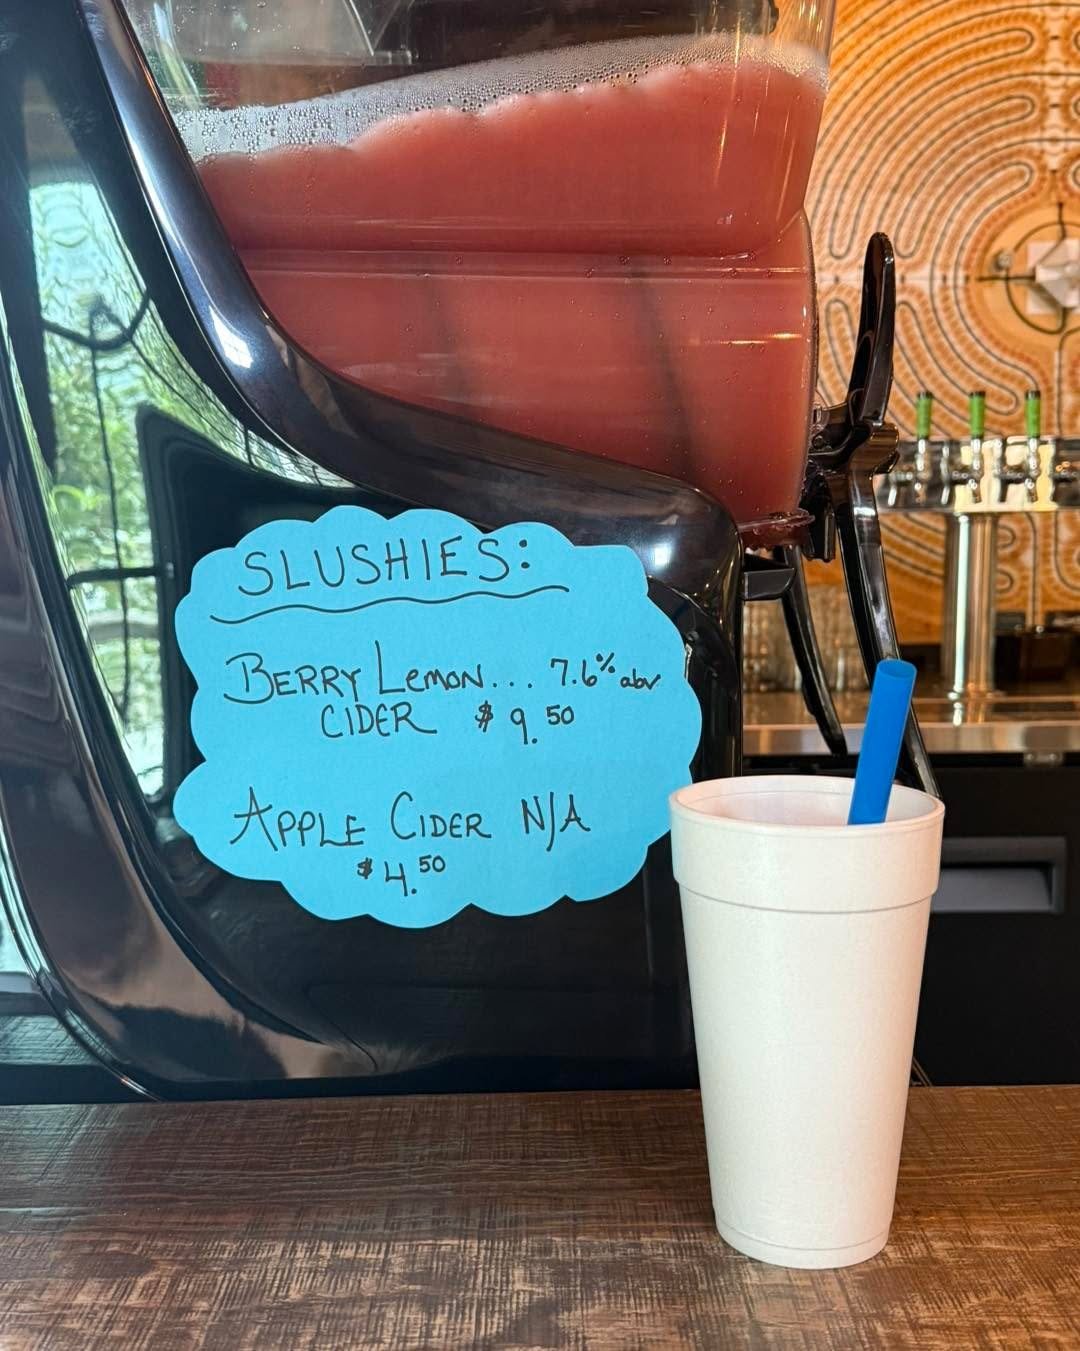 SLUSHIES:
BERRY LEMON... 7.6% abv
CIDER $9.50
APPLE CIDER N/A
$4.50